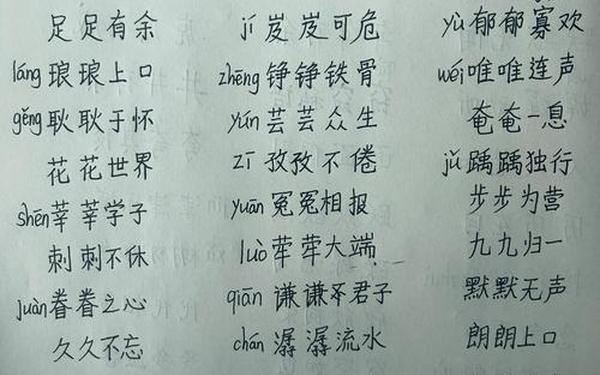 足足有余 jí 岌岌可危 yù 郁郁寡欢
láng 琅琅上口 zhēng 铮铮铁骨 wéi 唯唯连声
gěng 耿耿于怀 yún 芸芸众生 奄奄一息
花花世界 zī 孜孜不倦 jǔ 踽踽独行
shēn 莘莘学子 yuān 冤冤相报 步步为营
刺刺不休 luò 荦荦大端 九九归一
juàn 眷眷之心 qiān 谦谦君子 默默无声
久久不忘 chán 潺潺流水 朗朗上口